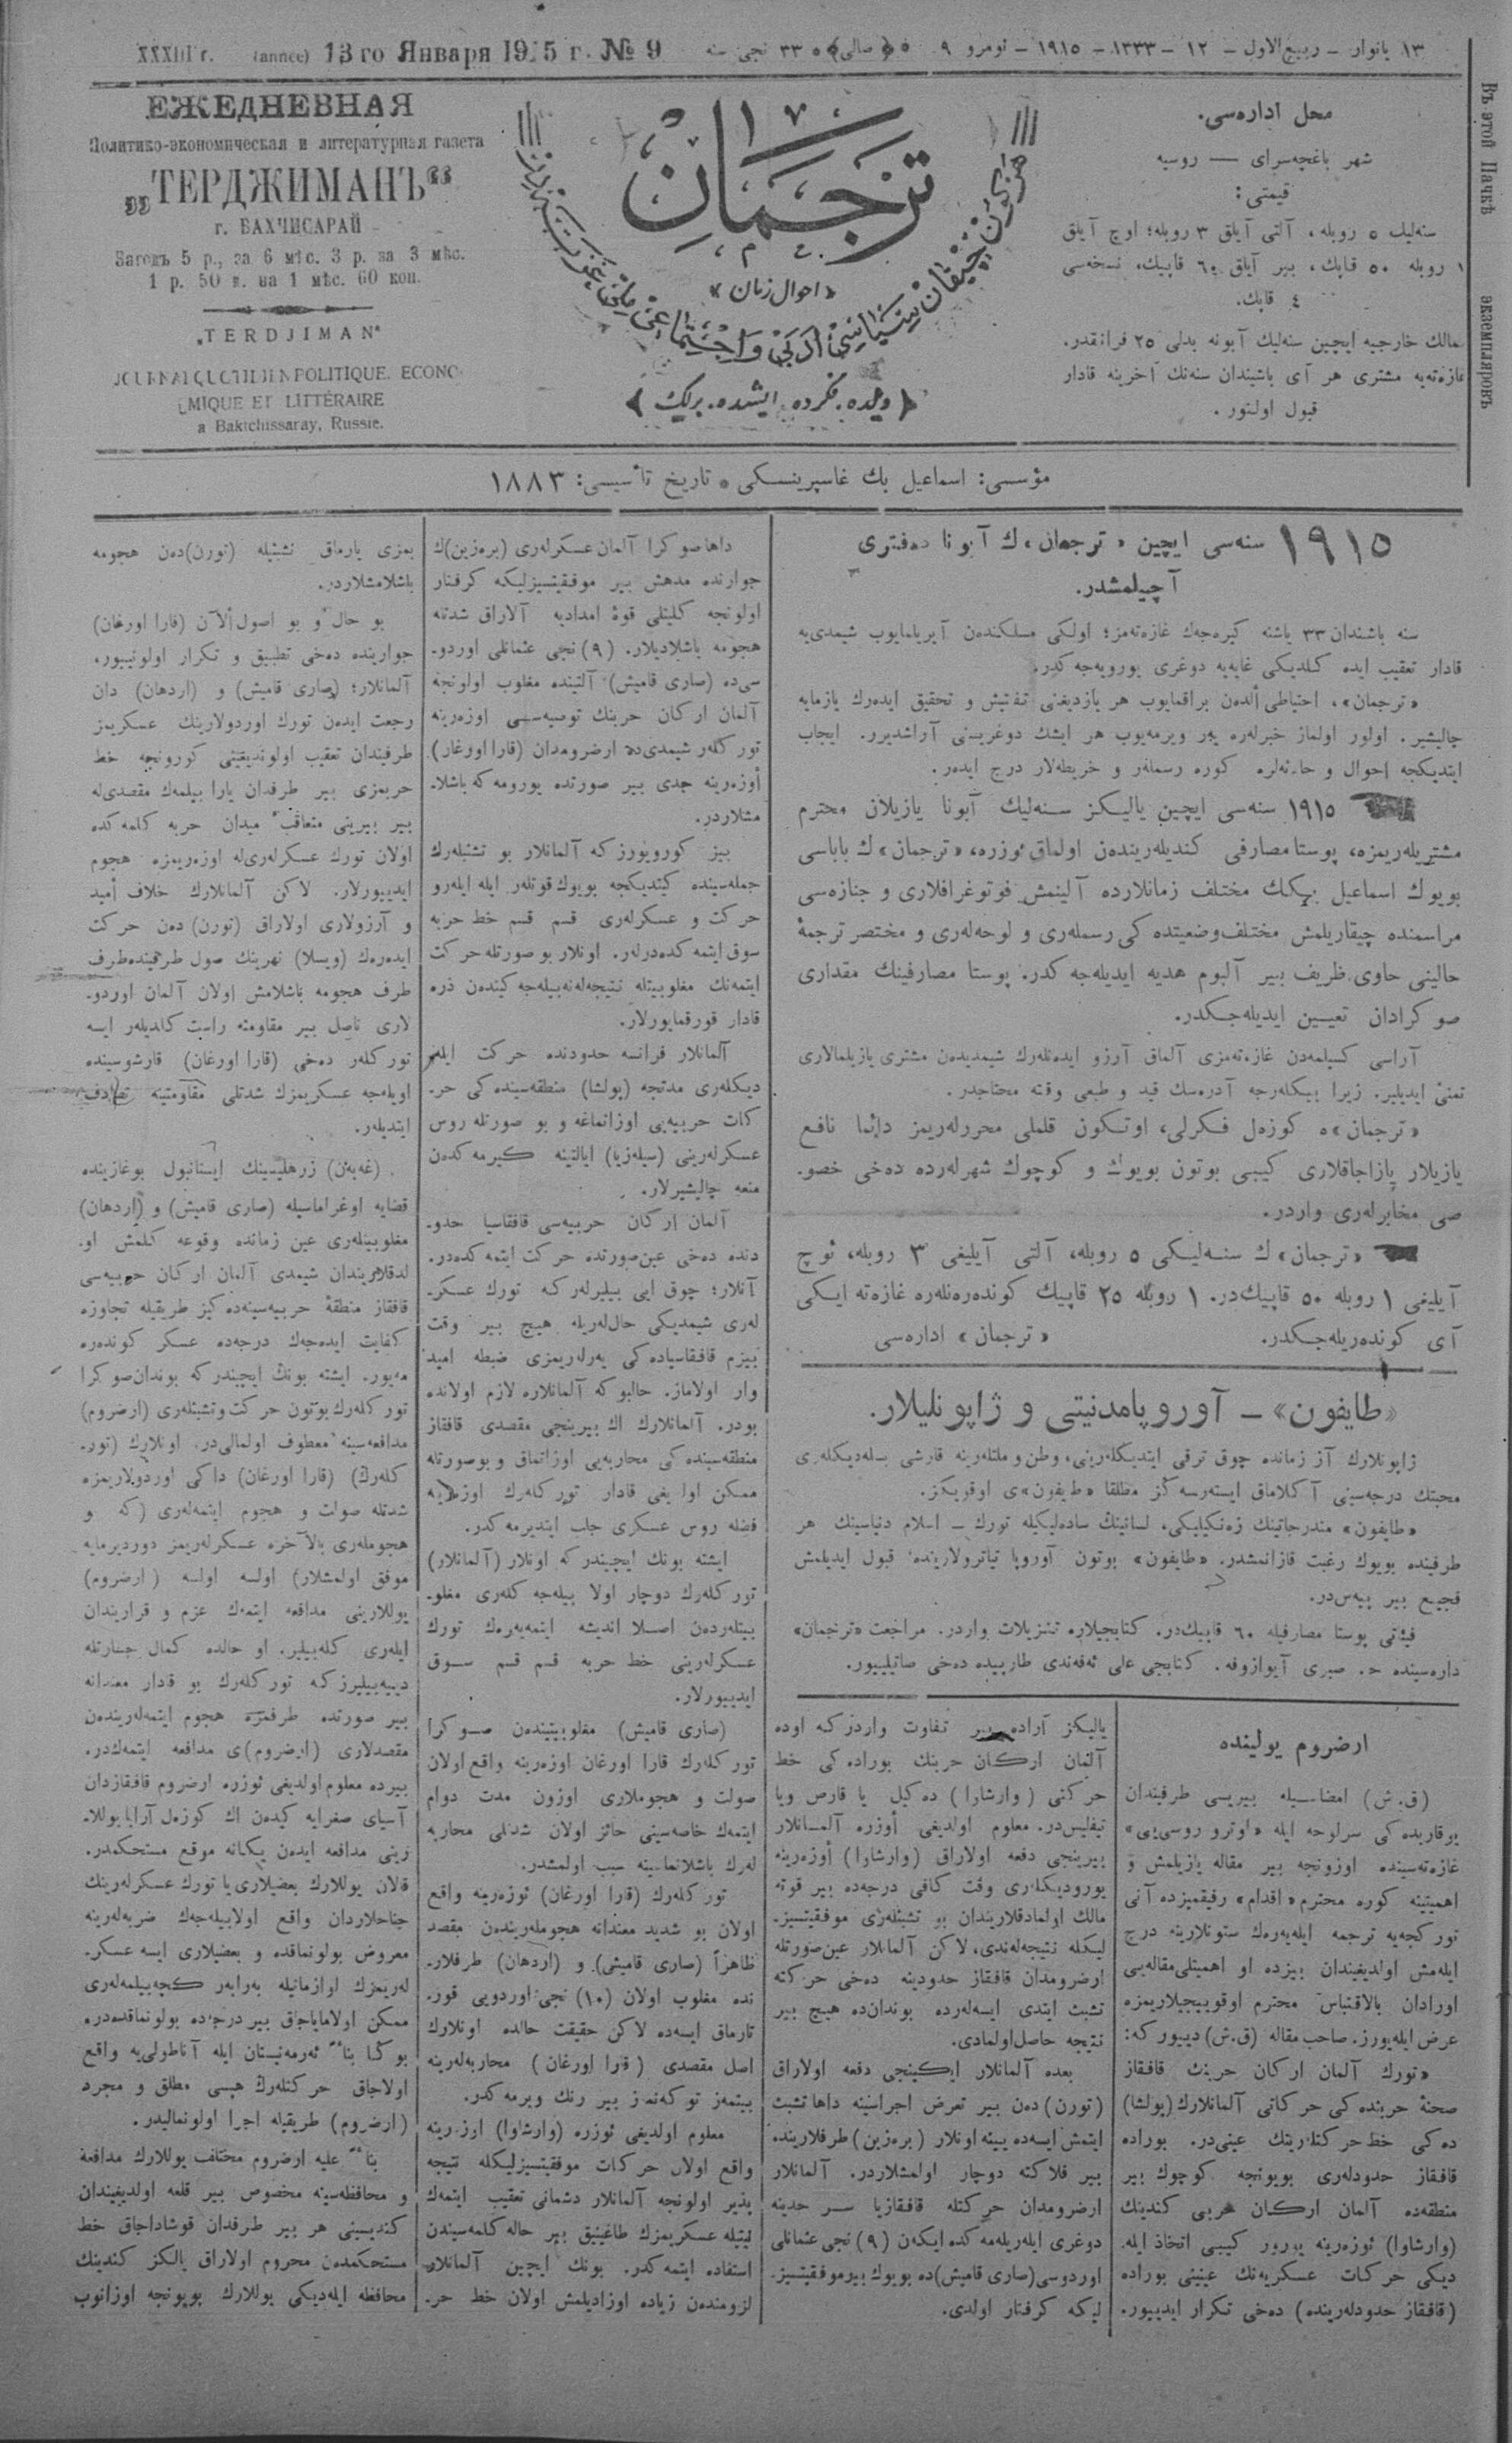 ١٣ يانوار – ربيع‌الاول – ١٢ – ١٣٣٣ – ١٩١٥ – نومرو ٩ ﴿صالى﴾ ٣٣ نجى سنه
XXXIII г. (année) 13 го Января 1915 г. № 9
ЕЖЕДНЕВНАЯ
Политико-экономическая и литературная газета
„ТЕРДЖИМАНЪ“
г. БАХЧИСАРАЙ
За годъ 5 р., за 6 мѣс. 3 р. за 3 мѣс.
1 р. 50 к. на 1 мѣс. 60 коп.
„TERDJIMAN“
JOURNAL QUOTIDIEN POLITIQUE. ECONO-
MIQUE ET LITTÉRAIRE
a Baktchissaray, Russie.
ترجمان
«احوال زمان»
﴿ديلده. فكرده. ايشده. برلك﴾
محل اداره‌سى.
شهر باغچه‌سراى — روسيه
قيمتى:
سنه‌ليك ٥ روبله، آلتى آيلق ٣ روبله؛ اوچ آيلق
١ روبله ٥٠ قاپك، بير آيلق ٦٠ قاپيك، نسخه‌سى
٤ قاپك.
ممالك خارجيه ايچين سنه‌ليك آبونه بدلى ٢٥ فرانقدر.
غازه‌ته‌يه مشترى هر آى باشيندان سنه‌نك آخرينه قادار
قبول اولنور.
Въ этой Пачкѣ экземпляровъ
مؤسسى: اسماعيل بك غاسپرينسكى • تاريخ تأسيسى: ١٨٨٣
١٩١٥ سنه‌سى ايچين «ترجمان»ك آبونا دفترى
آچيلمشدر.
سنه باشندان ٣٣ ياشنه كيره‌جك غازه‌ته‌مز؛ اولكى مسلكندەن آيريلمايوب شيمدى‌يه
قادار تعقيب ايده كلديكى غايه‌يه دوغرى يورويه‌جه‌كدر.
«ترجمان»، احتياطى ألدەن براقمايوب هر يازديغنى تفتيش و تحقيق ايدەرك يازمايه
چاليشير. اولور اولماز خبرلەره يەر ويرمه‌يوب هر ايشك دوغريسنى آراشديرر. ايجاب
ايتديكجه احوال و حادثه‌لره كوره رسملەر و خريطه‌لار درج ايدەر.
١٩١٥ سنه‌سى ايچين ياليكز سنه‌ليك آبونا يازيلان محترم
مشتريله‌ريمزه، پوستا مصارفى كنديله‌ريندەن اولماق ئوزره، «ترجمان»ك باباسى
بويوك اسماعيل بيكك مختلف زمانلارده آلينمش فوتوغرافلارى و جنازه‌سى
مراسمنده چيقاريلمش مختلف وضعيتده كى رسمله‌رى و لوحه‌له‌رى و مختصر ترجمهٔ
حالينى حاوى ظريف بير آلبوم هديه ايديله‌جه‌كدر. پوستا مصارفينك مقدارى
صوكرادان تعيين ايديله‌جكدر.
آراسى كسيلمه‌دن غازه‌ته‌مزى آلماق آرزو ايدەنلەرك شيمديدەن مشترى يازيلمالارى
تمنى ايديلير. زيرا بيكلەرجه آدرەسك قيد و طبعى وقته محتاجدر.
«ترجمان»ه كوزەل فكرلى، اوتكون قلملى محررلەريمز دائما نافع
يازيلار يازاجاقلارى كيبى بوتون بويوك و كوچوك شهرلەرده دەخى خصو-
صى مخابرلەرى واردر.
«ترجمان»ك سنه‌ليكى ٥ روبله، آلتى آيليغى ٣ روبله، ئوچ
آيليغى ١ روبله ٥٠ قاپيك‌در. ١ روبله ٢٥ قاپيك كوندەرەنلەره غازه‌ته ايكى
آى كوندەريله‌جكدر. «ترجمان» اداره‌سى
«طايفون» – آوروپا مدنيتى و ژاپونليلار.
ژاپونلارك آز زمانده چوق ترقى ايتديكلەرينى، وطن و ملتلەرينه قارشى بسله‌ديكلەرى
محبتك درجه‌سينى آكلاماق ايسته‌رسه‌كز مطلقا «طايفون»ى اوقويكز.
«طايفون» مندرجاتينك زەنكيليكى، لسانينك ساده‌ليكيله تورك – اسلام دنياسينك هر
طرفينده بويوك رغبت قازانمشدر. «طايفون» بوتون آوروپا تياترولارينده قبول ايديلمش
فجيع بير پيه‌س‌در.
فيئتى پوستا مصارفيله ٦٠ قاپيك‌در. كتابجيلاره تنزيلات واردر. مراجعت «ترجمان»
داره‌سينده ح. صبرى آيوازوفه. كتابجى على ئه‌فه‌ندى طارپيده دەخى صاتيليور.
ارضروم يولينده
(ق. ش) امضاسيله بيريسى طرفيندان
يوقاريده كى سرلوحه ايله «اوترو روسى‌يى»
غازه‌ته‌سينده اوزونجه بير مقاله يازيلمش و
اهميتينه كوره محترم «اقدام» رفيقميزده آنى
توركجه‌يه ترجمه ايله‌يه‌رەك ستونلارينه درج
ايله‌مش اولديغيندان بيزده او اهميتلى مقاله‌يى
اورادان بالاقتباس محترم اوقوييجيلاريمزه
عرض ايله‌يورز. صاحب مقاله (ق. ش) دييور كه:
«تورك آلمان اركان حربيه‌ث قافقاز
صحنهٔ حربنده كى حركاتى آلمانلارك (پولشا)
ده كى خط حركتلرينك عينى‌در. بوراده
قافقاز حدودلەرى بويونجه كوچوك بير
منطقه‌ده آلمان اركان حربى كندينك
(وارشاوا) ئوزەرينه يورور كيبى اتخاذ ايله-
ديكى حركات عسكريه‌نك عينينى بوراده
(قافقاز حدودلەرينده) دەخى تكرار ايدييور.
ياليكز آراده بير تفاوت واردركه اوده
آلمان اركان حربنك بوراده كى خط
حركتى (وارشارا) دەكيل يا قارص ويا
تيفليس‌در. معلوم اولديغى أوزره آلمانلار
بيرينجى دفعه اولاراق (وارشاوا) أوزەرينه
يوروديكلەرى وقت كافى درجه‌ده بير قوته
مالك اولمادقلاريندان بو تشبثلەرى موفقيتسيز-
ليكله نتيجه‌لەندى، لاكن آلمانلار عين صورتله
ارضرومدان قافقاز حدودينه دەخى حركته
تشبث ايتدى ايسه‌لەرده بوندان‌ده هيچ بير
نتيجه حاصل اولمادى.
بعده آلمانلار ايكينجى دفعه اولاراق
(تورن) دەن بير تعرض اجراسينه داها تشبث
ايتمش ايسه‌ده يينه اونلار (برەزين) طرفلارينده
بير فلاكته دوچار اولمشلاردر. آلمانلار
ارضرومدان حركتله قافقازيا سر حدينه
دوغرى ايلەريله‌مه‌كده ايكەن (٩) نجى عثمانلى
اوردوسى (صارى قاميش)ده بويوك بير موفقيتسيز-
ليكه كرفتار اولدى.
داها صوكرا آلمان عسكرلەرى (برەزين)ك
جوارنده مدهش بير موفقيتسيزليكه كرفتار
اولونجه كليتلى قوهٔ امداديه آلاراق شدتله
هجومه باشلاديلار. (٩) نجى عثمانلى اوردو-
سى‌ده (صارى قاميش) آلتينده مغلوب اولونجه
آلمان اركان حربنك توصيه‌سى اوزەرينه
توركلەر شيمدى‌ده ارضرومدان (قارا اورغان)
أوزەرينه جدى بير صورتده يورومه كه باشلا-
مشلاردر.
بيز كورويورز كه آلمانلار بو تشبثلەرك
جمله‌سينده كيتديكجه بويوك قوتلەر ايله ايلەرو
حركت و عسكرلەرى قسم قسم خط حربه
سوق ايتمه كدەدرلەر. اونلار بو صورتله حركت
ايتمه‌نك مغلوبيتله نتيجه‌لەنه‌بيله‌جه كيندەن ذره
قادار قورقمايورلار.
آلمانلار فرانسه حدودنده حركت ايله
ديكلەرى مدتجه (پولشا) منطقه‌سينده كى حر-
كات حربيه‌يى اوزاتماغه و بو صورتله روس
عسكرلەرينى (سيله‌زيا) ايالتينه كيرمه كدەن
منعه چاليشيرلار.
آلمان اركان حربيه‌سى قافقاسيا حدو-
دنده دەخى عين صورتده حركت ايتمه كده‌در.
آنلار؛ چوق ايى بيليرلەركه تورك عسكر-
لەرى شيمديكى حال‌لەريله هيچ بير وقت
بيزم قافقاسياده كى يەرلەريمزى ضبطه اميد
وار اولاماز. حالبوكه آلمانلاره لازم اولانده
بودر. آلمانلارك اك بيرينجى مقصدى قافقاز
منطقه‌سينده كى محاربه‌يى اوزاتماق و بو صورتله
ممكن اولديغى قادار توركلەرك اوزەرينه
فضله روس عسكرى جلب ايتديرمه كدر.
ايشته بونك ايچيندركه اونلار (آلمانلار)
توركلەرك دوچار اولا بيله‌جه كلەرى مغلو-
بيتلەردەن اصلا انديشه ايتمه‌يه‌رەك تورك
عسكرلەرينى خط حربه قسم قسم سوق
ايدييورلار.
(صارى قاميش) مغلوبيتيندەن صوكرا
توركلەرك قارا اورغان اوزەرينه واقع اولان
صولت و هجوملارى اوزون مدت دوام
ايتمه‌ك خاصه‌سينى حائز اولان شدتلى محاربه
لەرك باشلانماسينه سبب اولمشدر.
توركلەرك (قارا اورغان) ئوزەرينه واقع
اولان بو شديد معندانه هجوملەريندەن مقصد
ظاهراً (صارى قاميش) و (اردهان) طرفلار-
نده مغلوب اولان (١٠) نجى اوردويى قور-
تارماق ايسه‌ده لاكن حقيقت حالده اونلارك
اصل مقصدى (قرا اورغان) محاربه‌لەرينه
بيتمەز توكەنمەز بير رنك ويرمه كدر.
معلوم اولديغى ئوزره (وارشاوا) اوزەرينه
واقع اولان حركات موفقيتسيزليكله نتيجه
پذير اولونجه آلمانلار دشمانى تعقيب ايتمه‌ك
نيتيله عسكريمزك طاغينيق بير حاله كلمه‌سيندن
استفاده ايتمه كدر. بونك ايچين آلمانلار
لزومندەن زياده اوزاديلمش اولان خط حر-
بمزى يارماق تشبثيله (تورن)دەن هجومه
باشلامشلاردر.
بو حال و بو اصول ألآن (قارا اورغان)
جوارينده دەخى تطبيق و تكرار اولونييور.
آلمانلار؛ (صارى قاميش) و (اردهان) دان
رجعت ايدەن تورك اوردولارينك عسكريمز
طرفيندان تعقيب اولونديغنى كورونجه خط
حربمزى بير طرفدان يارا بيلمه‌ك مقصدى‌له
بير بيرينى متعاقب ميدان حربه كلمه كده
اولان تورك عسكرلەرى‌له اوزەريمزه هجوم
ايدييورلار. لاكن آلمانلارك خلاف أميد
و آرزولارى اولاراق (تورن) دەن حركت
ايدەرەك (ويسلا) نهرينك صول طرفينده طرف
طرف هجومه باشلامش اولان آلمان اوردو-
لارى ناصل بير مقاومته راست كلديلەر ايسه
توركلەر دەخى (قارا اورغان) قارشوسينده
اويله‌جه عسكريمزك شدتلى مقاومتينه تصادف
ايتديلەر.
(غه‌به‌ن) زرهليسينك ايستانبول بوغازينده
قضايه اوغراماسيله (صارى قاميش) و (اردهان)
مغلوبيتلەرى عين زمانده وقوعه كلمش او-
لدقلاريندان شيمدى آلمان اركان حربيه‌سى
قافقاز منطقهٔ حربيه‌سينده كيز طريقيله تجاوزه
كفايت ايده‌جك درجه‌ده عسكر كوندەره
مه‌يور. ايشته بونك ايچيندركه بوندان صوكرا
توركلەرك بوتون حركت و تشبثلەرى (ارضروم)
مدافعه‌سينه معطوف اولمالى‌در. اونلارك (تور-
كلەرك) (قارا اورغان) داكى اوردولاريمزه
شدتله صولت و هجوم ايتمه‌لەرى (كه و
هجوملەرى بالآخره عسكرلەريمز دورديرمايه
موفق اولمشلار) اولسه اولسه (ارضروم)
يوللارينى مدافعه ايتمه‌ك عزم و قراريندان
ايلەرى كله‌بيلير. او حالده كمال جسارتله
دييه‌بيليرز كه توركلەرك بو قادار معندانه
بير صورتده طرفمزه هجوم ايتمه‌لەريندەن
مقصدلارى (ارضروم)ى مدافعه ايتمه‌ك‌در.
بيرده معلوم اولديغى ئوزره ارضروم قافقازدان
آسياى صغرايه كيدەن اك كوزەل آرابا يوللا-
رينى مدافعه ايدەن يكانه موقع مستحكمدر.
قالان يوللارك بعضيلارى يا تورك عسكرلەرينك
جناحلاردان واقع اولابيله‌جه‌ك ضربه‌لەرينه
معروض بولونماقده و بعضيلارى ايسه عسكر-
لەريمزك لوازماتيله به‌رابه‌ر كچه‌بيلمه‌لەرى
ممكن اولاماياجاق بير درجه‌ده بولونماقده‌در.
بوكا بناءً ئه‌رمه‌نيستان ايله آناطولى‌يه واقع
اولاجاق حركتلەرك هپسى مطلق و مجرد
(ارضروم) طريقيله اجرا اولونماليدر.
بناءً عليه ارضروم مختلف يوللارك مدافعهٔ
و محافظه‌سينه مخصوص بير قلعه اولديغيندان
كنديسينى هر بير طرفدان قوشاداجاق خط
مستحكمدەن محروم اولاراق يالكز كندينك
محافظه ايله‌ديكى يوللارك بويونجه اوزانوب